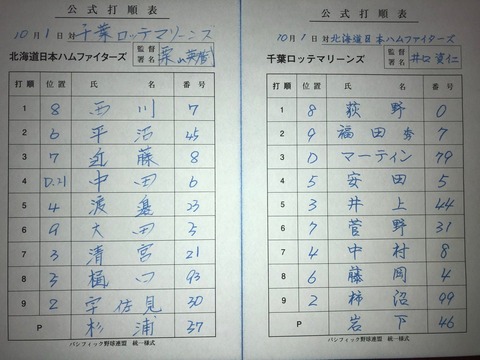 公式打順表
10月1日対千葉ロッテマリーンズ
北海道日本ハムファイターズ 監督署名 栗山英樹
打順 位置 氏名 番号
1 8 西川 7
2 6 平沼 45
3 7 近藤 8
4 中田 6
5 4 渡邉 23
6 9 大田 5
7 3 清宮 21
8 5 樋口 93
9 2 宇佐見 30
P 杉浦 57
パシフィック野球連盟 統一様式
公式打順表
10月1日対北海道日本ハムファイターズ
千葉ロッテマリーンズ 監督署名 井口資仁
打順 位置 氏名 番号
1 8 荻野 0
2 9 福田秀 7
3 D マーティン 79
4 5 安田 5
5 3 井上 44
6 7 菅野 31
7 4 中村 8
8 6 藤岡 4
9 2 柿沼 99
P 岩下 46
パシフィック野球連盟 統一様式